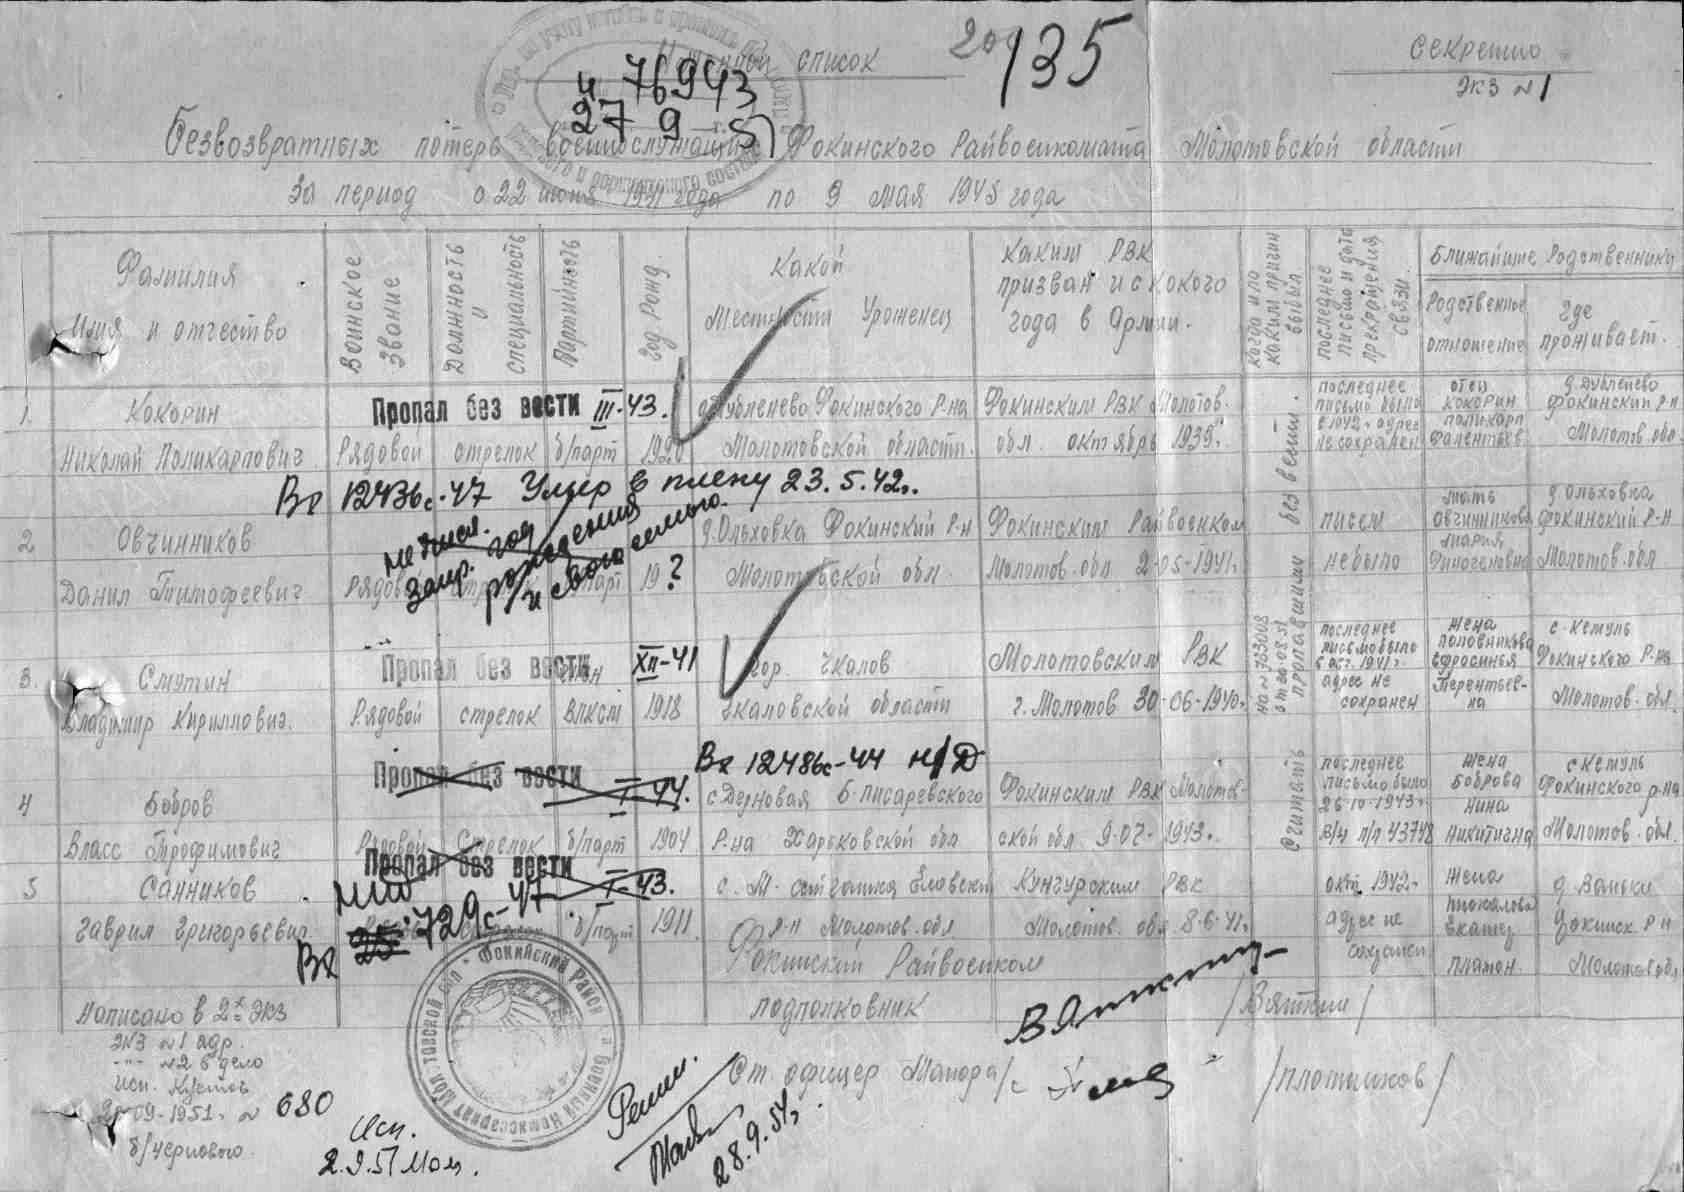 Именной список
20
135
Секретно
Экз №1
76943
27 9 51
Безвозвратных потерь военнослужащих Фокинского Райвоенкомата Молотовской области
За период с 22 июня 1941 года по 9 мая 1945 года
Фамилия Имя и отчество
Воинское звание
Должность и специальность
Партийность
Год рожд.
Какой местности уроженец
Каким РВК призван и с какого года в армии.
Когда и по каким причин выбыл
Последнее письмо и дата прекращения связи.
Ближайшие родственники
Родственное отношение
Где проживает.
1. Кокорин
Николай Поликарпович
Пропал без вести III-43.
Рядовой стрелок б/парт 1920
д. Дубленево Фокинского р-на
Молотовской области.
Фокинским РВК Молотов.
обл. октябрь 1939г.
последнее
письмо было
в 1942г. адрес
не сохранен
отец
Кокорин
Поликарп
д. Дубленево
Фокинский р-н
Молотов. обл.
Вх 12436с-47 Умер в плену 23.5.42г.
2 Овчинников
Данил Тимофеевич
Запр. год
рождения
и
Рядовой стрелок б/парт 19 ?
д. Ольховка Фокинский р-н
Молотовской обл.
Фокинским Райвоенком
Молотов. обл 2-05-1941г.
писем
не было
мать
Овчинникова
Мария
д. Ольховка
Фокинский р-н
Молотов. обл
Считать пропавшими без вести.
3. Смутин
Владимир Кириллович.
Пропал без вести XII-41
член
Рядовой стрелок ВЛКСМ 1918
гор. Чкалов
Чкаловской области
Молотовским РВК
г. Молотов 30-06-1940г.
последнее
письмо было
в авг. 1941г.
адрес не
сохранен
жена
Половникова
Ефросинья
Терентьев-
на
с. Кемуль
Фокинского р-на
Молотов. обл.
4 Бобров
Власс Трофимович
Пропал без вести
I-44.
Вх 12486с-44 н/Д
Рядовой стрелок б/парт 1904
с Дерновая Б-Писаревского
р-на Харьковской обл
Фокинским РВК Молотов-
ской обл 9-07-1943г.
последнее
письмо было
26-10-1943г.
в/ч п/п 43748
жена
Боброва
Нина
Никитична
с Кемуль
Фокинского р-на
Молотов. обл.
5 Санников
Гаврил Григорьевич
Пропал без вести
I-43.
Вх 729с-47
б/парт 1911
р-н Молотов. обл
Кунгурским РВК
Молотов. обл 8-6-41г.
окт. 1942г.
адрес не
сохранен
жена
Екатер
Платон.
д. Ваньки
Фокинск. р-н
Молотов обл
Фокинский Райвоенком
подполковник
/Вяткин/
Ст. офицер
/Плотников/
Написано в 2х экз
экз №1 адр.
-"- №2 в дело
исп. Кустов
09-1951г. № 680
б/чернового.
Исп.
28.9.51г.
Фокинский Районный Военный Комиссариат Молотовской обл